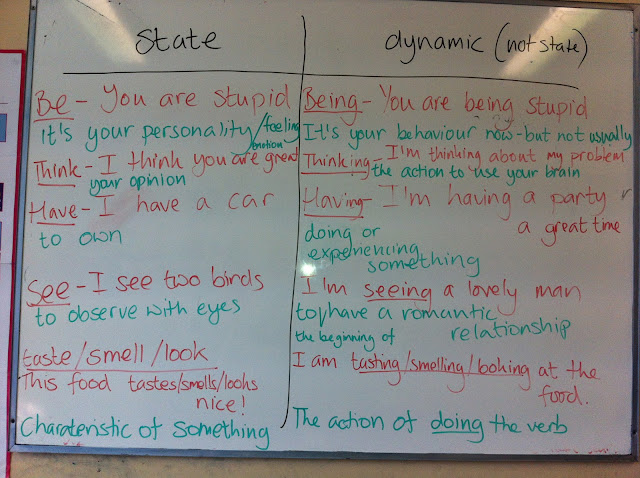 State
dynamic (not state)
Be - You are stupid
It's your personality/feeling
emotion
Think - I think you are great
your opinion
Have - I have a car
to own
See - I see two birds
to observe with eyes
taste/smell/look
This food tastes/smells/looks
nice!
Charateristic of something
Being - You are being stupid
It's your behaviour now - but not usually
Thinking - I'm thinking about my problem
the action to use your brain
Having - I'm having a party
a great time
doing or
experiencing
something
I'm seeing a lovely man
to/have a romantic
the beginning of relationship
I am tasting/smelling/looking at the
food.
The action of doing the verb